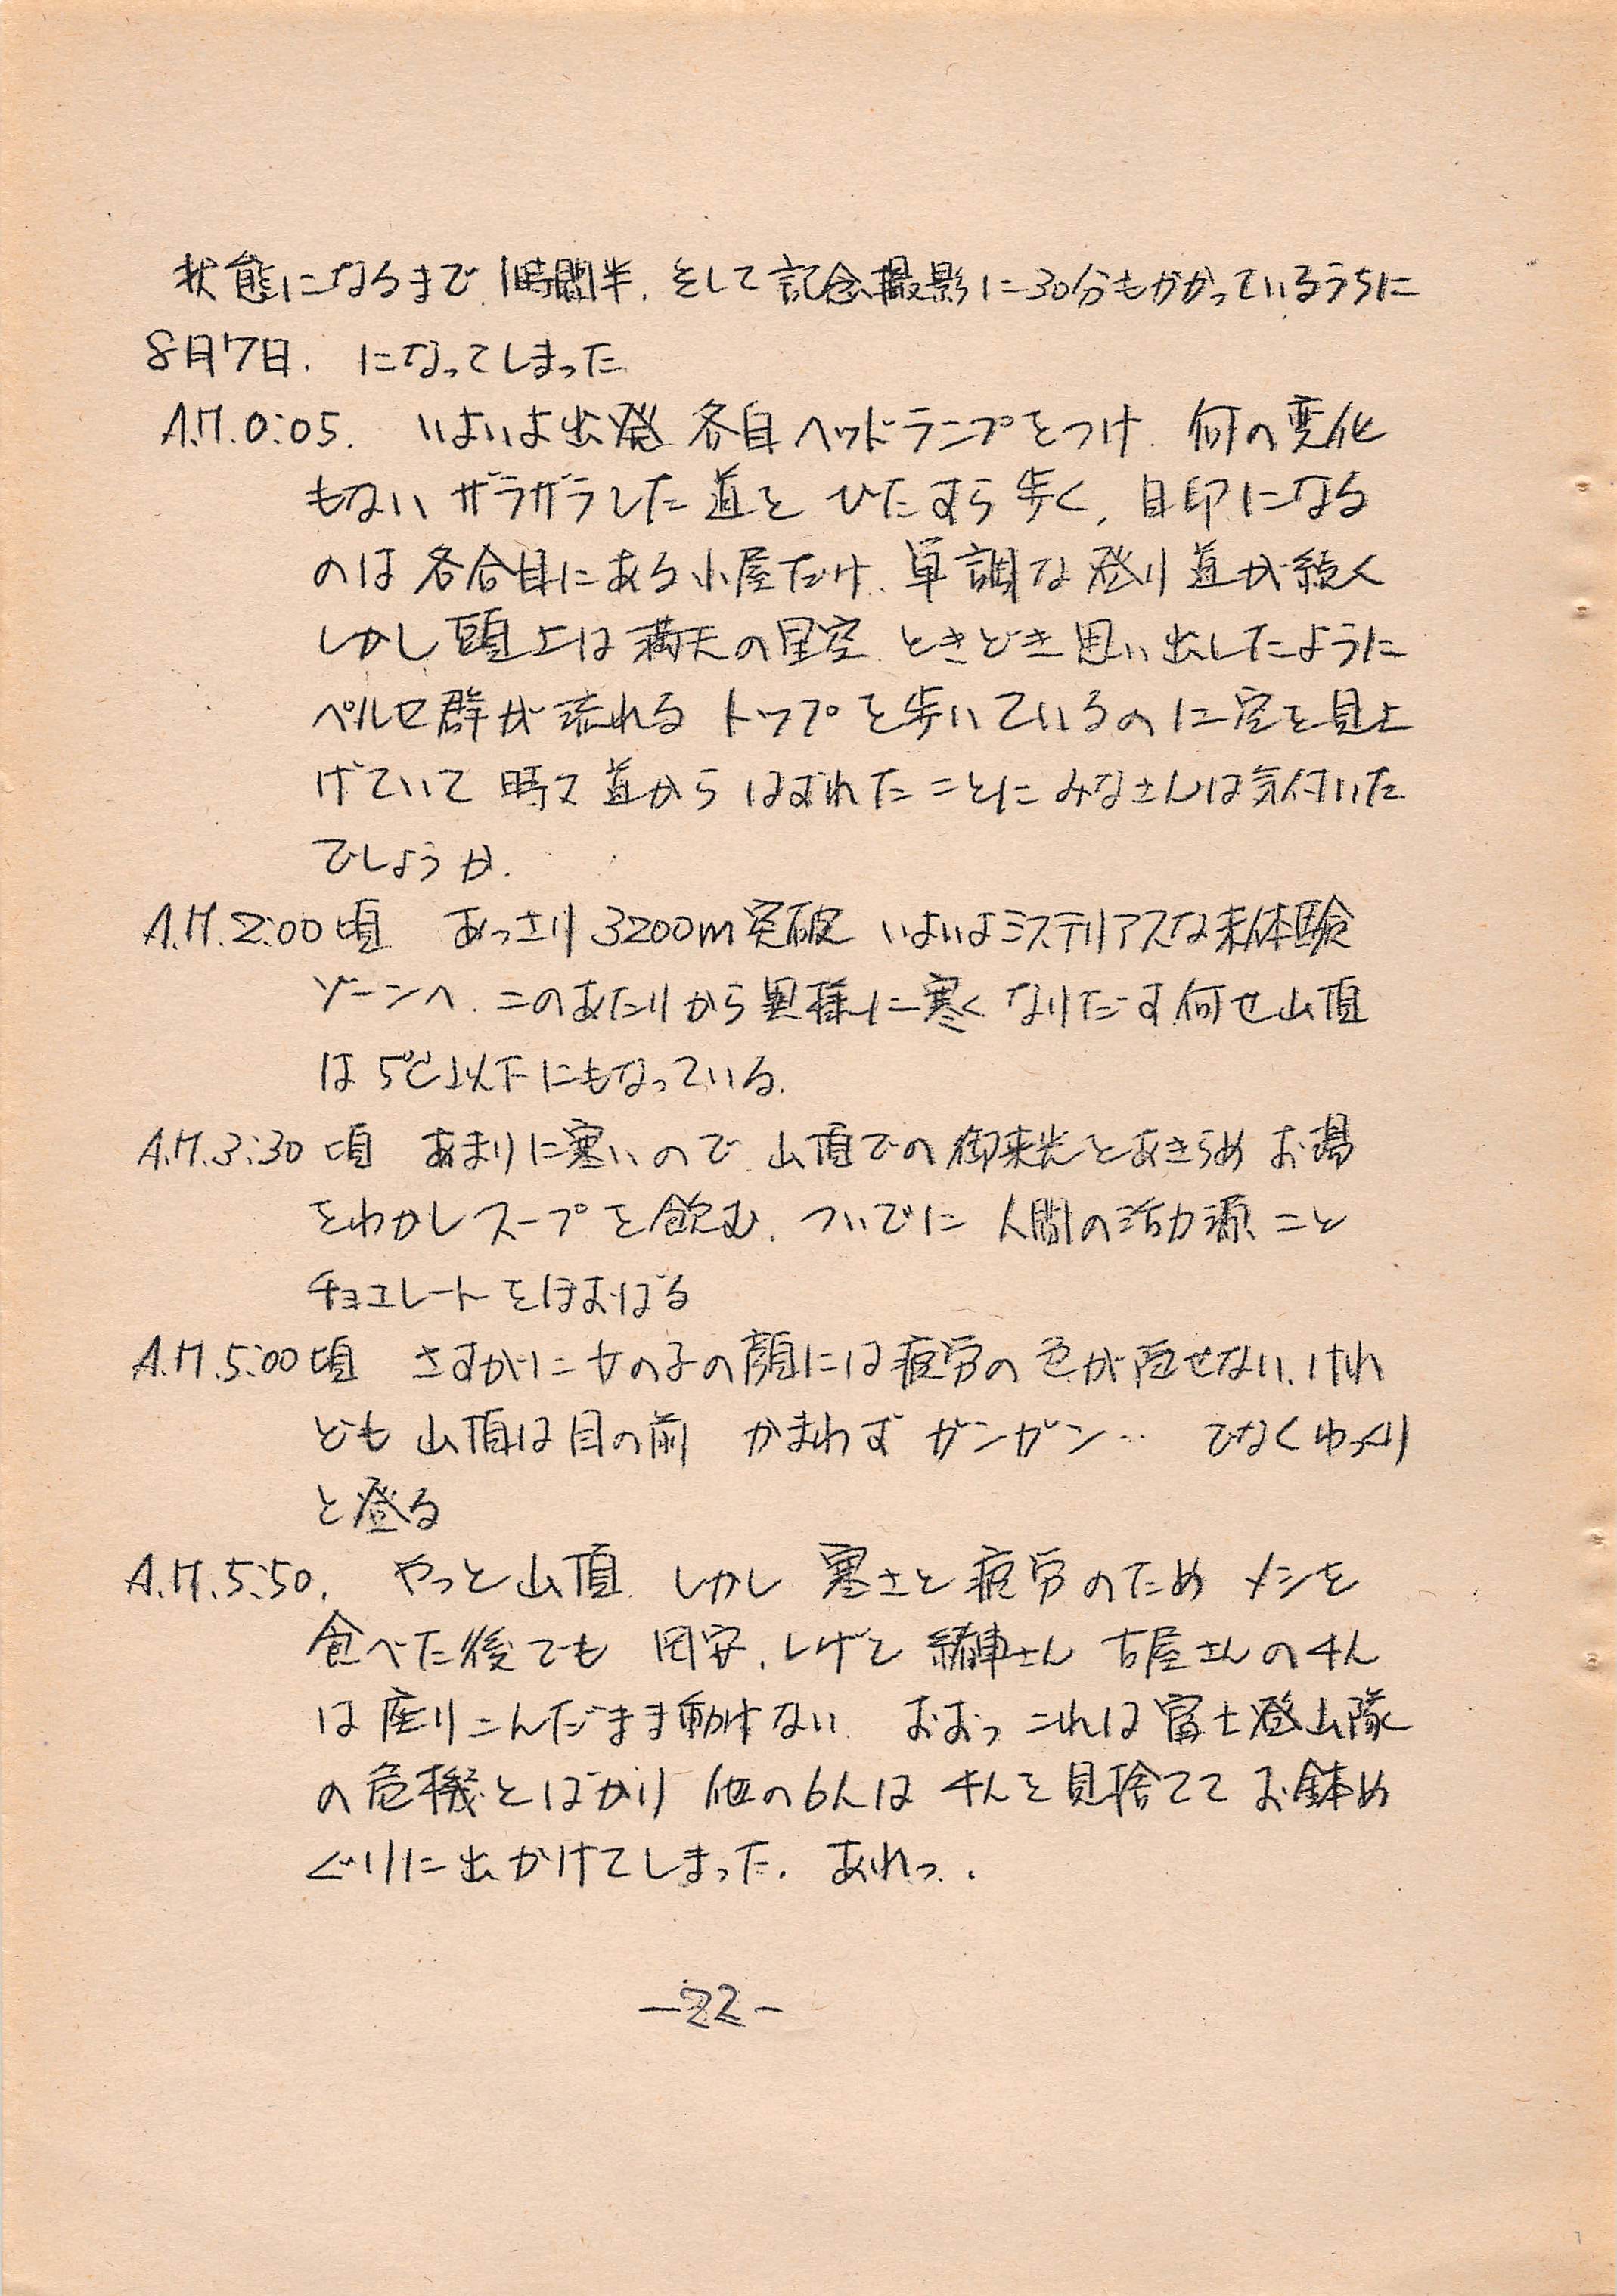 状態になるまで、1時間半、そして記念撮影に30分もかかっているうちに
8月7日、になってしまった
A.M.0:05. いよいよ出発 各自ヘッドランプをつけ、何の変化
もないザラザラした道をひたすら歩く、目印になる
のは各合目にある小屋だけ、単調な登り道が続く
しかし頭上は満天の星空、ときどき思い出したように
ペルセ群が流れる トップを歩いているのに空を見上
げていて 時々道からはずれたことにみなさんは気付いた
でしょうか.
A.M.2:00頃 あっさり3200m突破 いよいよミステリアスな未体験
ゾーンへ、このあたりから異様に寒くなりだす何せ山頂
は5℃以下にもなっている.
A.M.3:30頃 あまりに寒いので、山頂での御来光をあきらめ お湯
をわかしスープを飲む、ついでに 人間の活力源こと
チョコレートをほおばる
A.M.5:00頃 さすがに女の子の顔には疲労の色が隠せない、けれ
ども山頂は目の前 かまわずガンガン… でなくゆっくり
と登る
A.M.5:50. やっと山頂、しかし 寒さと疲労のため メシを
食べた後でも 岡安、しげと さん 古屋さんの4人
は座りこんだまま動けない、おおっ これは富士登山隊
の危機とばかり 他の6人は 4人を見捨てて お鉢め
ぐりに出かけてしまった. あれっ.
—22—